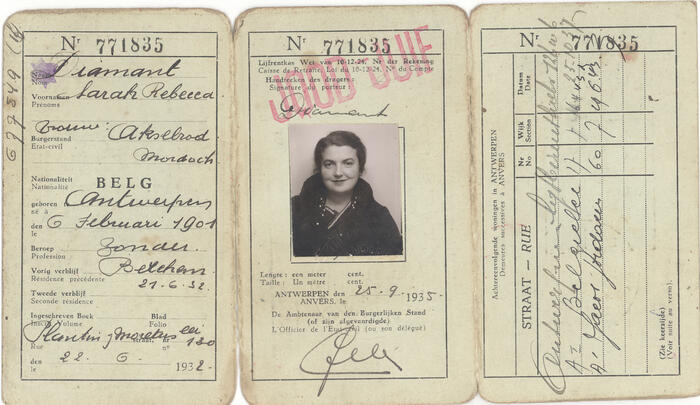 Nr 771835
677349
Naam
Nom
Diamant
Voornamen
Prénoms
Sarah Rebecca
Burgerstand
Etat-civil
vrouw Akselrod
Mordoch
Nationaliteit
Nationalité
BELG
geboren
né à
Antwerpen
den
le
6 Februari 1901
Beroep
Profession
zonder
Vorig verblijf
Résidence précédente
Berchem
21.6.32.
Tweede verblijf
Seconde résidence
Ingeschreven Boek Blad
Inscrit Volume Folio
Plantin Moretus
Rue straat, nr
nº
130
den
le
22 6 1932
Nr 771835
Lijfrentkas Wet van 10-12-24, Nr der Rekening
Caisse de Retraite, Loi du 10-12-24, Nº du Compte
JOOD-JUIF
Handteeken des dragers:
Signature du porteur:
Diamant
Lengte : een meter cent.
Taille : Un mètre cent.
ANTWERPEN den
ANVERS, le
25.9.1935.
De Ambtenaar van den Burgerlijken Stand
(of zijn afgevaardigde)
L'Officier de l'Etat-civil (ou son délégué)
Nr 771835
Achtereenvolgende woningen in ANTWERPEN
Demeures successives à ANVERS
STRAAT — RUE
Nr
No
Wijk
Section
Datum
Date
Belgiëlei
Jacob Jordaens
60 7
(Zie keerzijde)
(Voir suite au verso)